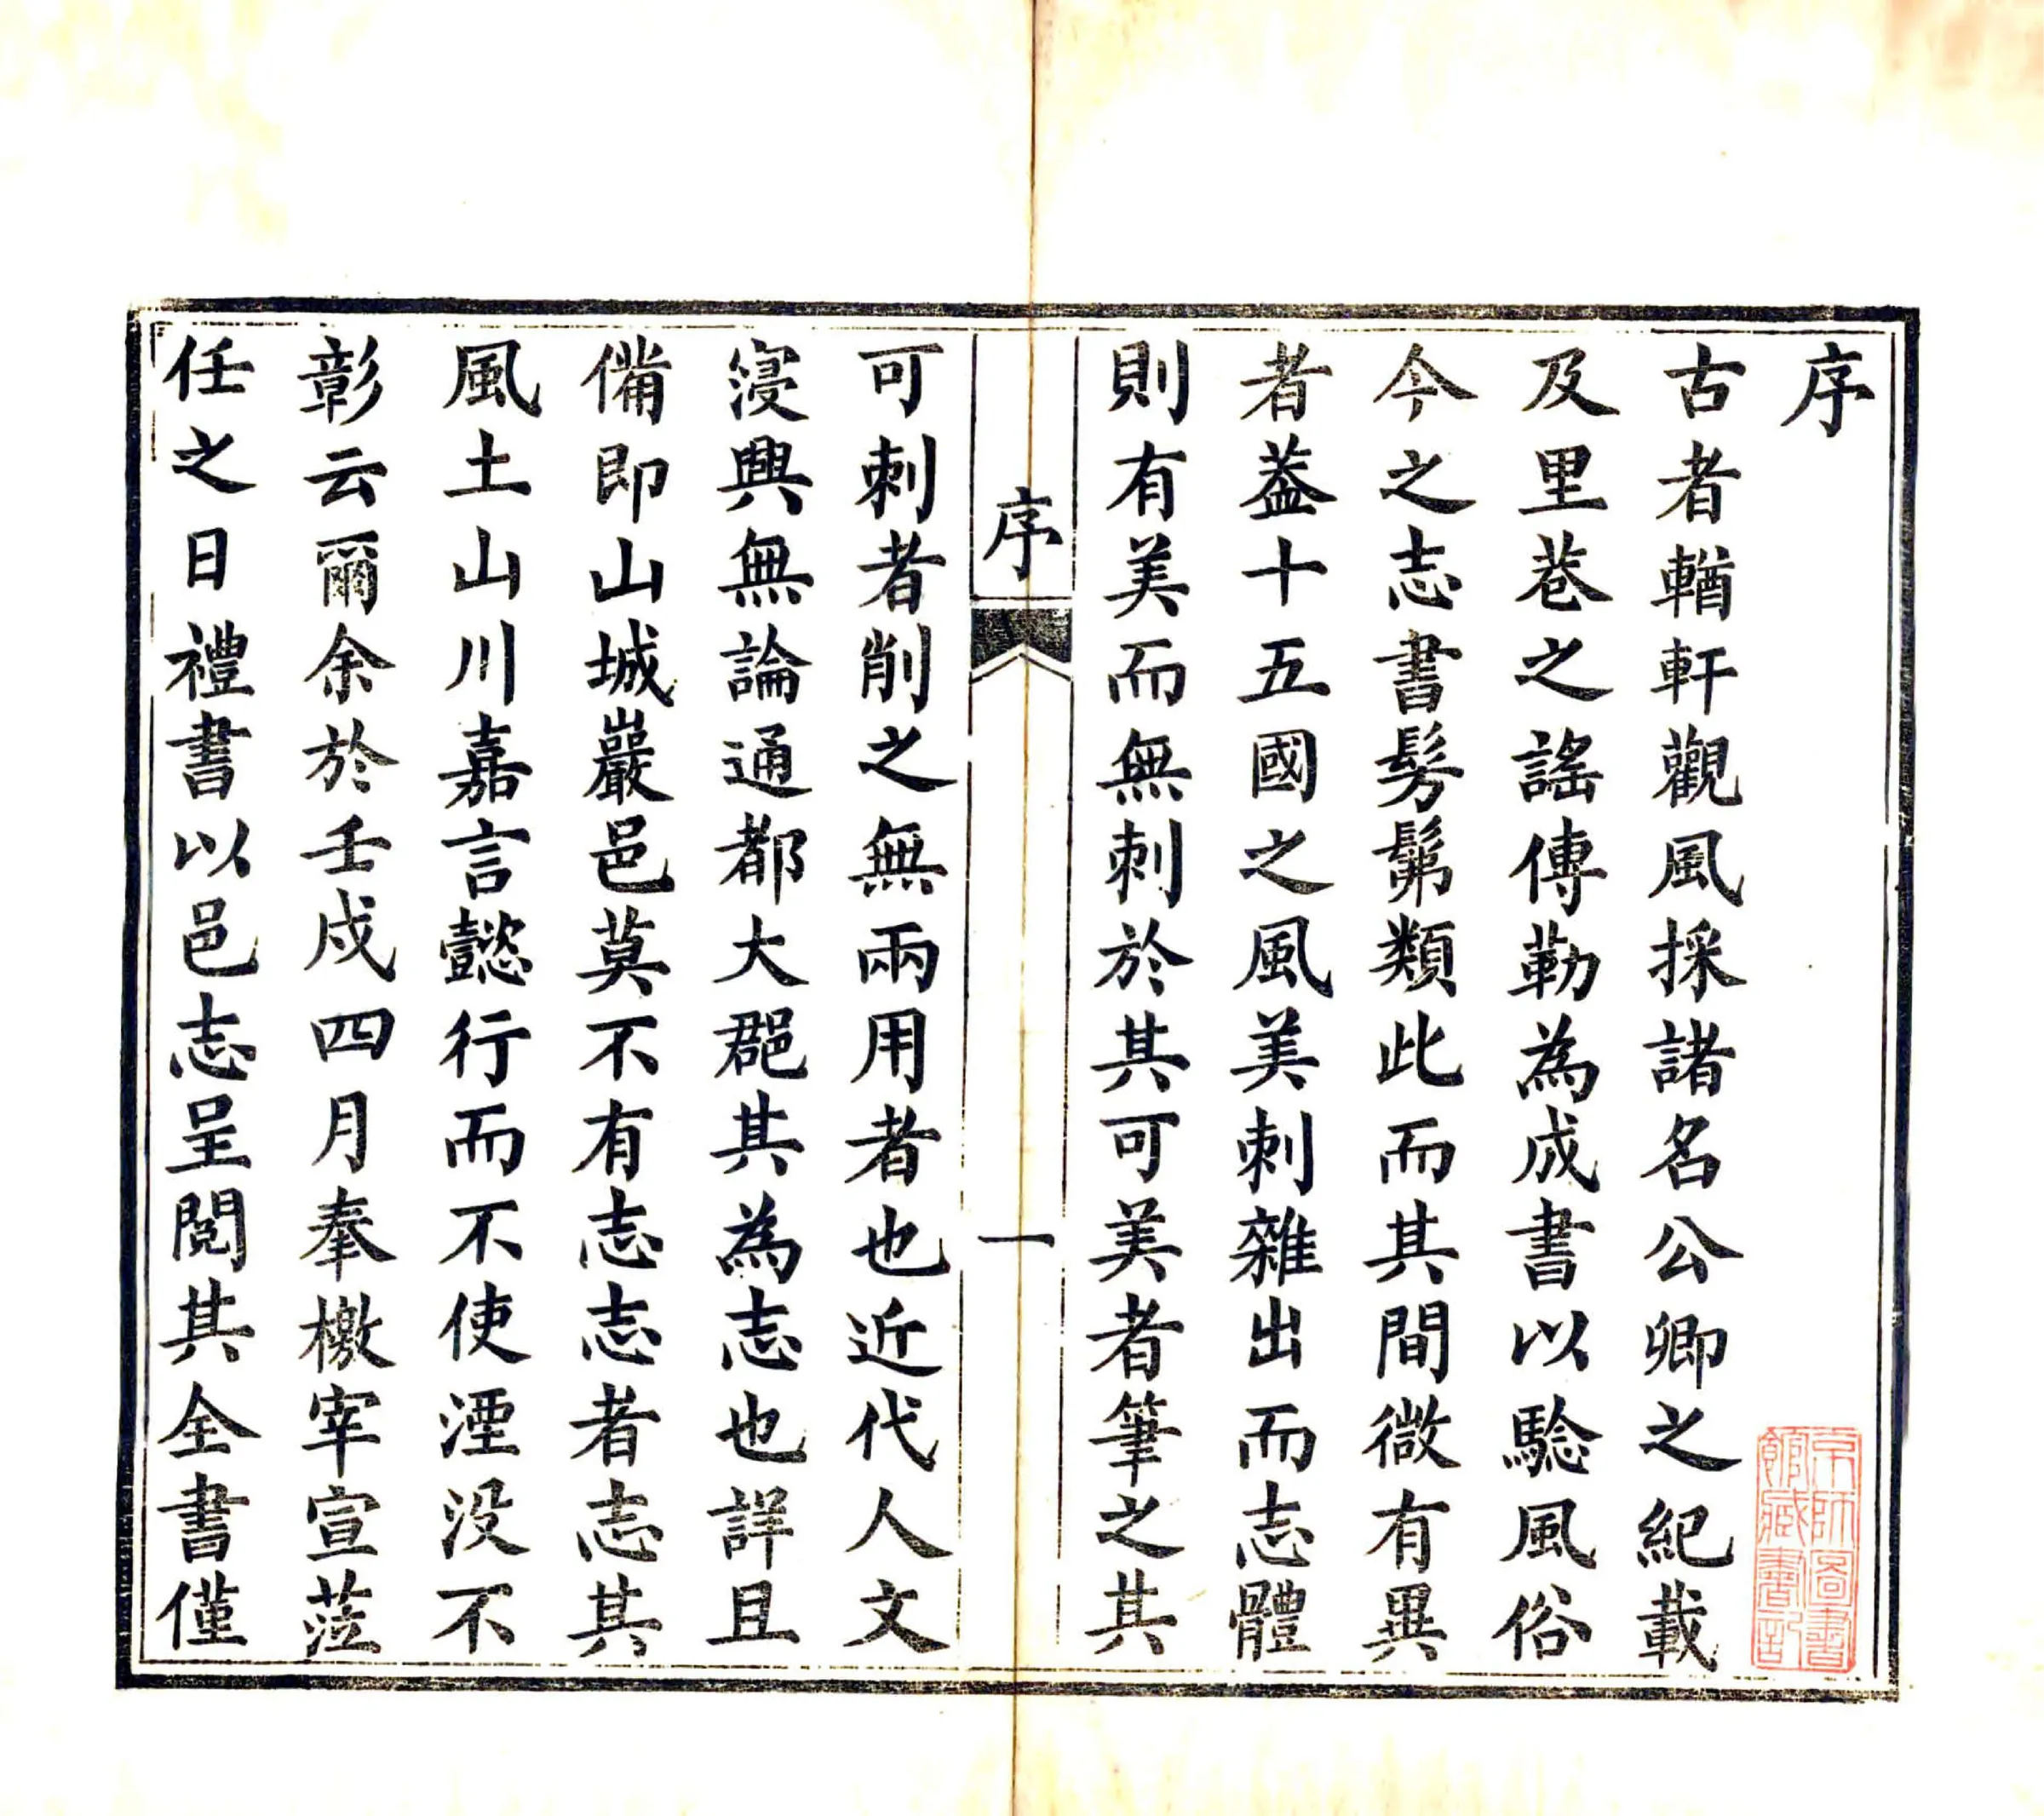 序
古者輶軒觀風採諸名公卿之紀載
及里巷之謠傳勒為成書以騐風俗
今之志書髣髴類此而其間微有異
者葢十五國之風美刺雜出而志體
則有美而無刺於其可美者筆之其
序
一
可刺者削之無兩用者也近代人文
寖興無論通都大郡其為志也詳且
備即山城巖邑莫不有志志者志其
風土山川嘉言懿行而不使湮没不
彰云爾余於壬戌四月奉檄宰宣蒞
任之日禮書以邑志呈閱其全書僅
京師圖書
館藏書記